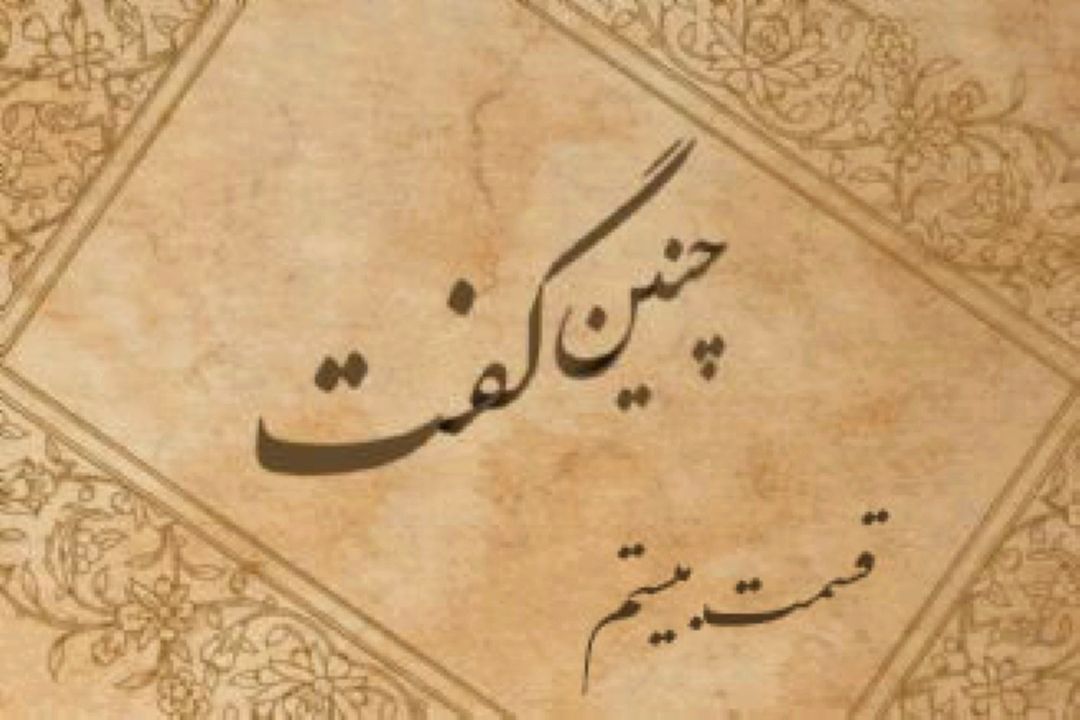 چنین گفت
قسمت بیستم